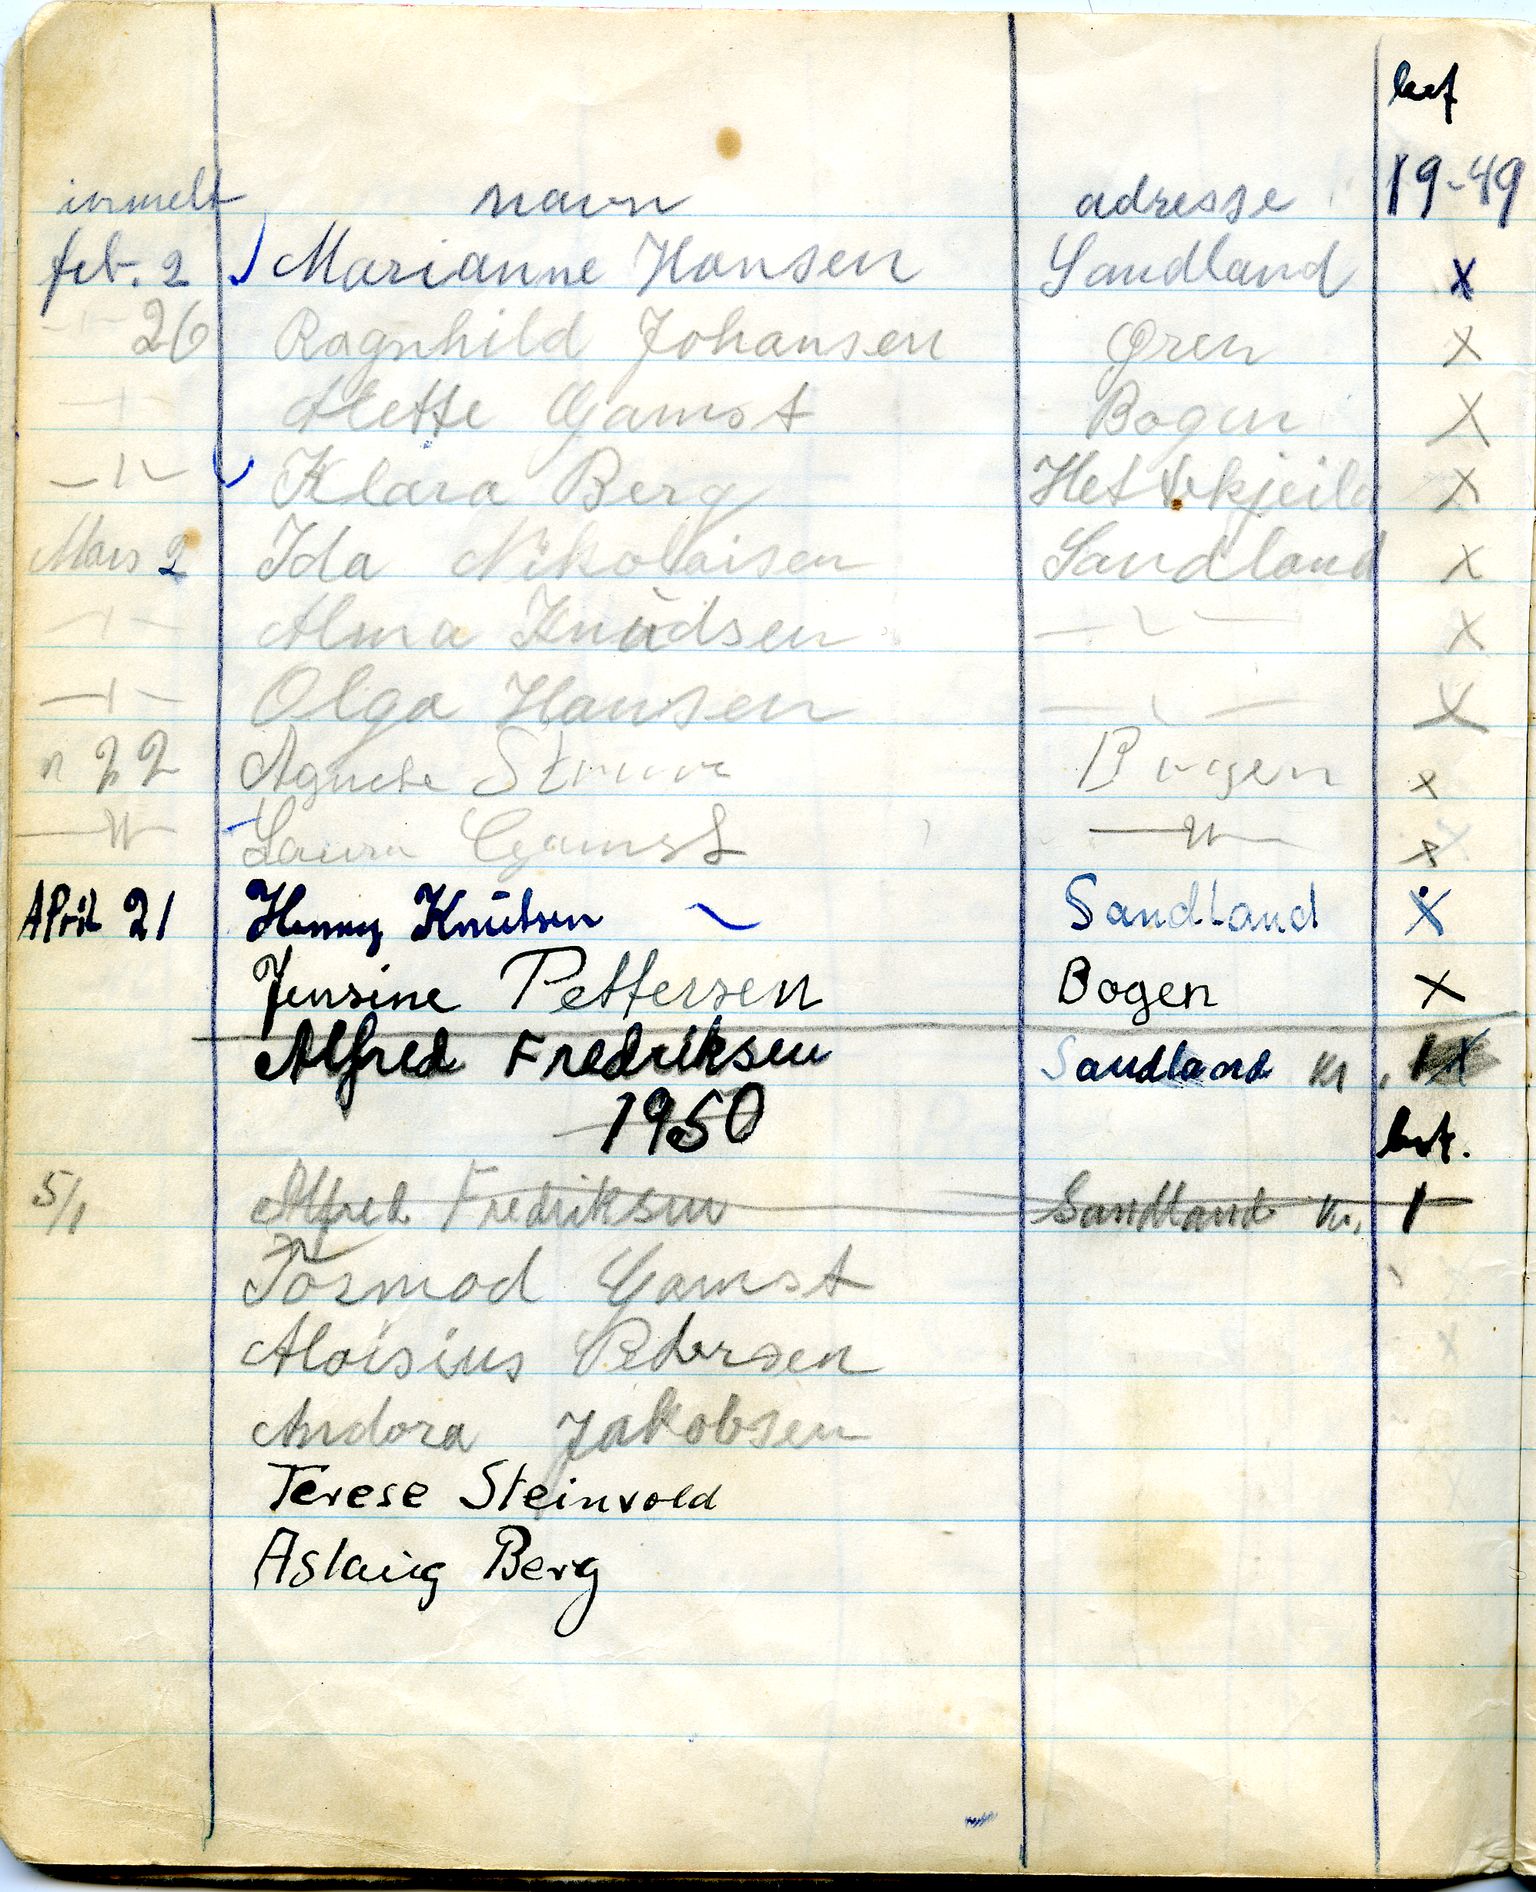 bet
innmelt navn adresse 19-49
feb. 2 Marianne Hansen Sandland x
-"- 26 Ragnhild Johansen Øren x
-"- Alette Gamst Bogen x
-"- Klara Berg x
Mars 2 Ida Nikolaisen Sandland x
-"- Alma Knudsen -"- x
-"- Olga Hansen -"- x
" 22 Agnete Bogen x
-"- Laura Gamst -"- x
April 21 Henny Knutsen Sandland x
Jensine Pettersen Bogen x
Alfred Fredriksen Sandland Kr. 1 x
1950 bet.
5/1 Alfred Fredriksen Sandland Kr. 1
Tormod Gamst
Aloisius Pedersen
Andora Jakobsen
Terese Steinvold
Aslaug Berg